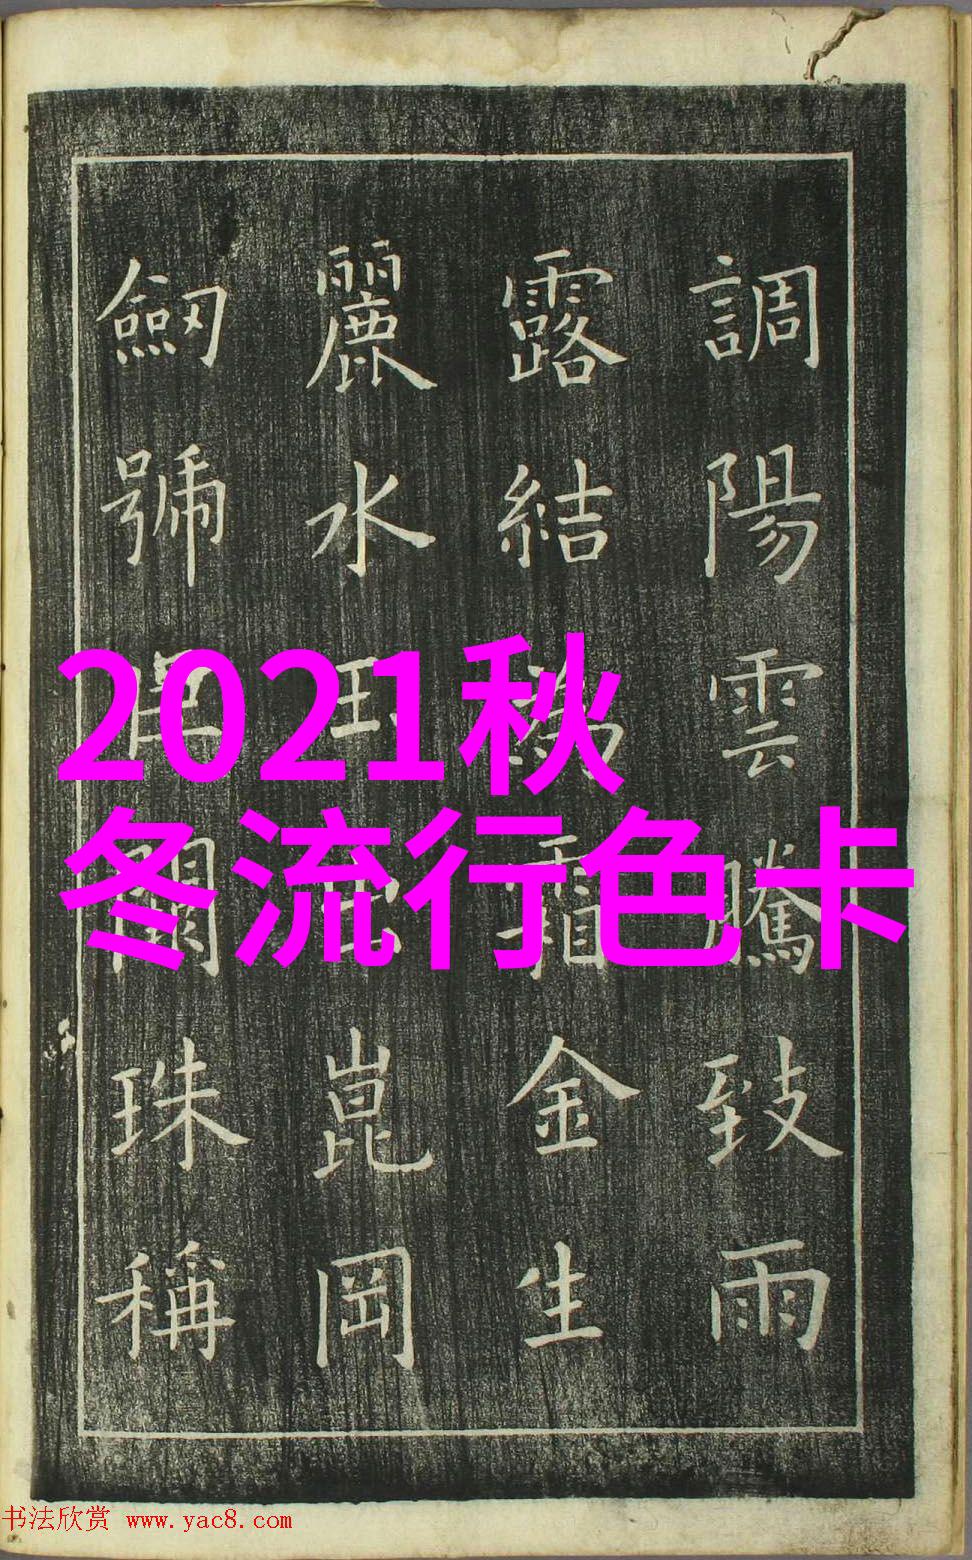 調陽雲騰致雨
露結霜金生
麗水玉崑岡
劒號珠稱
2021秋
冬流行色卡
书法欣赏 www.yac8.com